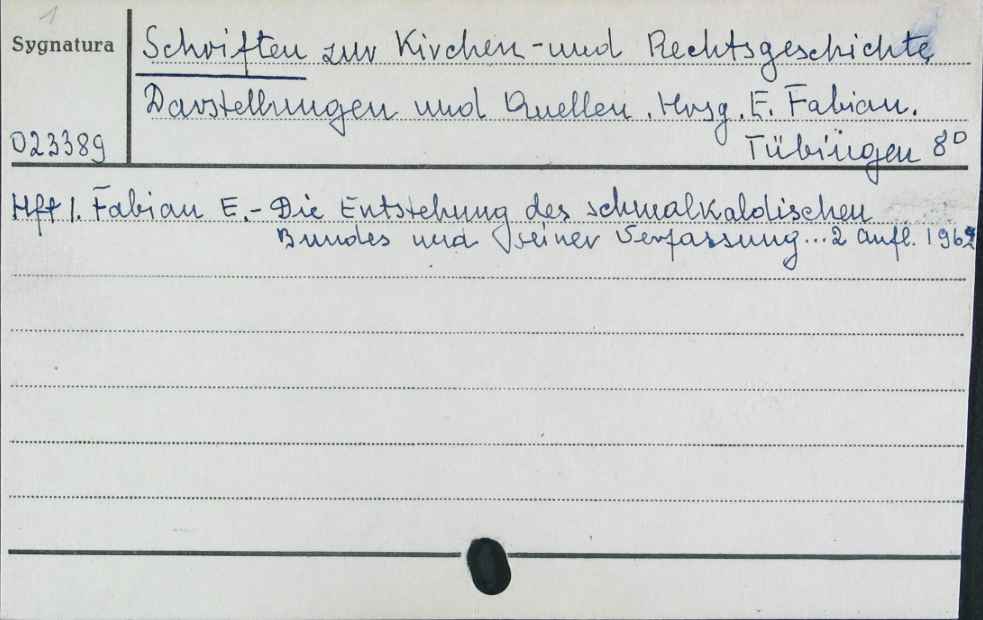 1
Sygnatura
Schriften zur Kirchen-und Rechtsgeschichte
Darstellungen und Quellen. Hrsg. E. Fabian.
023389
Tübingen 8°
Hft 1. Fabian E.- Die Entstehung des schmalkaldischen
Bundes und seiner Verfassung... 2 Aufl. 1962